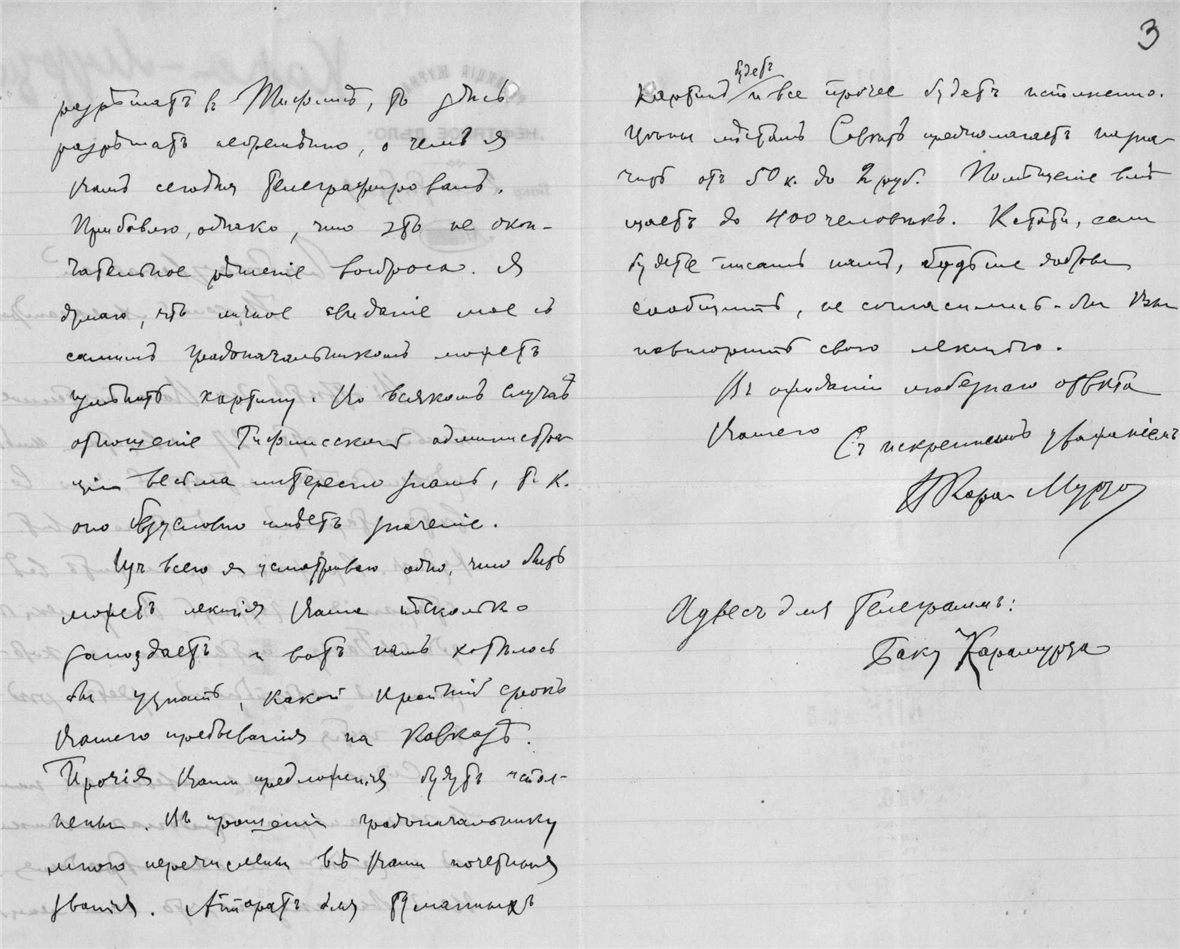 разрѣшатъ въ Тифлисѣ, то здѣсь
разрѣшатъ непремѣнно, о чемъ я
Вамъ сегодня телеграфировалъ.
Прибавлю, однако, что это не окон-
чательное рѣшеніе вопроса. Я
думаю, что личное свиданіе мое съ
самимъ градоначальникомъ можетъ
картину. Во всякомъ случаѣ
отношеніе Тифлисской администра-
ціи весьма интересно знать, т. к.
оно безусловно имѣетъ значеніе.
Изъ всего я усматриваю одно, что быть
можетъ лекція Ваша нѣсколько
запоздаетъ и вотъ намъ хотѣлось
бы узнать, какой крайній срокъ
Вашего пребыванія на Кавказѣ.
Прочія Ваши предложенія будутъ испол-
нены. Въ прошеніи градоначальнику
мною перечислены всѣ Ваши почетныя
званія. Аппаратъ для туманныхъ
3
будетъ
картинъ и все прочее будетъ исполнено.
Цѣны мѣстамъ Совѣтъ предполагаетъ назна-
чить отъ 50 к. до 2 руб. Помѣщеніе вмѣ-
щаетъ до 400 человѣкъ. Кстати, если
будете писать намъ, будьте добры
сообщить, не согласились-бы Вы
повторить свою лекцію.
Въ ожиданіи любезнаго отвѣта
Вашего
Съ искреннимъ уваженіемъ
Кара-Мурза
Адресъ для телеграммъ:
Баку Карамурза
НЕФТЯНОЕ ДѢЛО